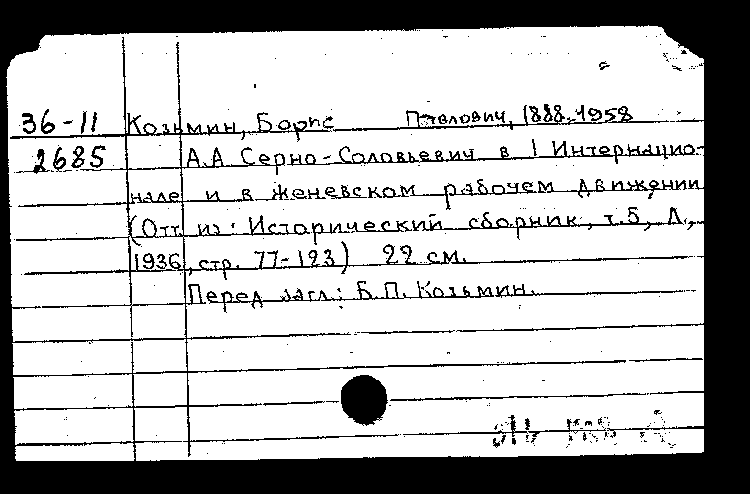 36-11 Козьмин, Борис Павлович, 1888-1958
2685 А.А Серно-Соловьевич в I Интернацио-
нале и в женевском рабочем движении
(Отт из: Исторический сборник, т.5, Л.,
1936, стр. 77-123) 22 см.
Перед загл.: Б.П. Козьмин.